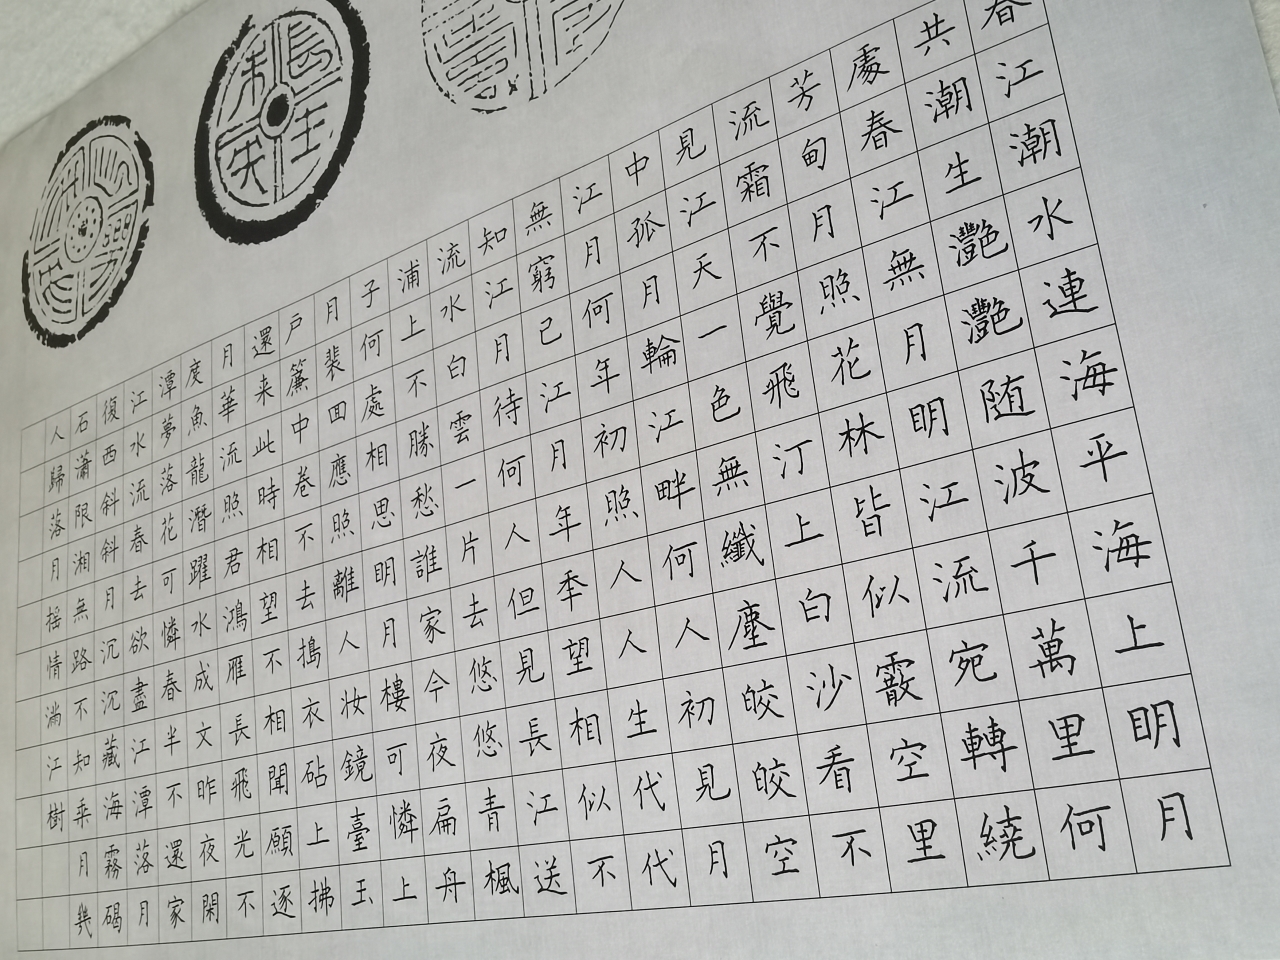 春江潮水連海平海上明月
共潮生灩灩随波千萬里何
處春江無月明江流宛轉繞
芳甸月照花林皆似霰空里
流霜不覺飛汀上白沙看不
見江天一色無纖塵皎皎空
中孤月輪江畔何人初見月
江月何年初照人人生代代
無窮己江月年季望相似不
知江月待何人但見長江送
流水白雲一片去悠悠青楓
浦上不勝愁誰家今夜扁舟
子何處相思明月樓可憐上
月裴囬應照離人妝鏡臺玉
戶簾中卷不去搗衣砧上拂
還来此時相望不相聞願逐
月華流照君鴻雁長飛光不
度魚龍潛躍水成文昨夜閑
潭夢落花可憐春半不還家
江水流春去欲盡江潭落月
復西斜斜月沉沉藏海霧碣
石瀟限湘無路不知乘月幾
人歸落月摇情满江樹
長生未央